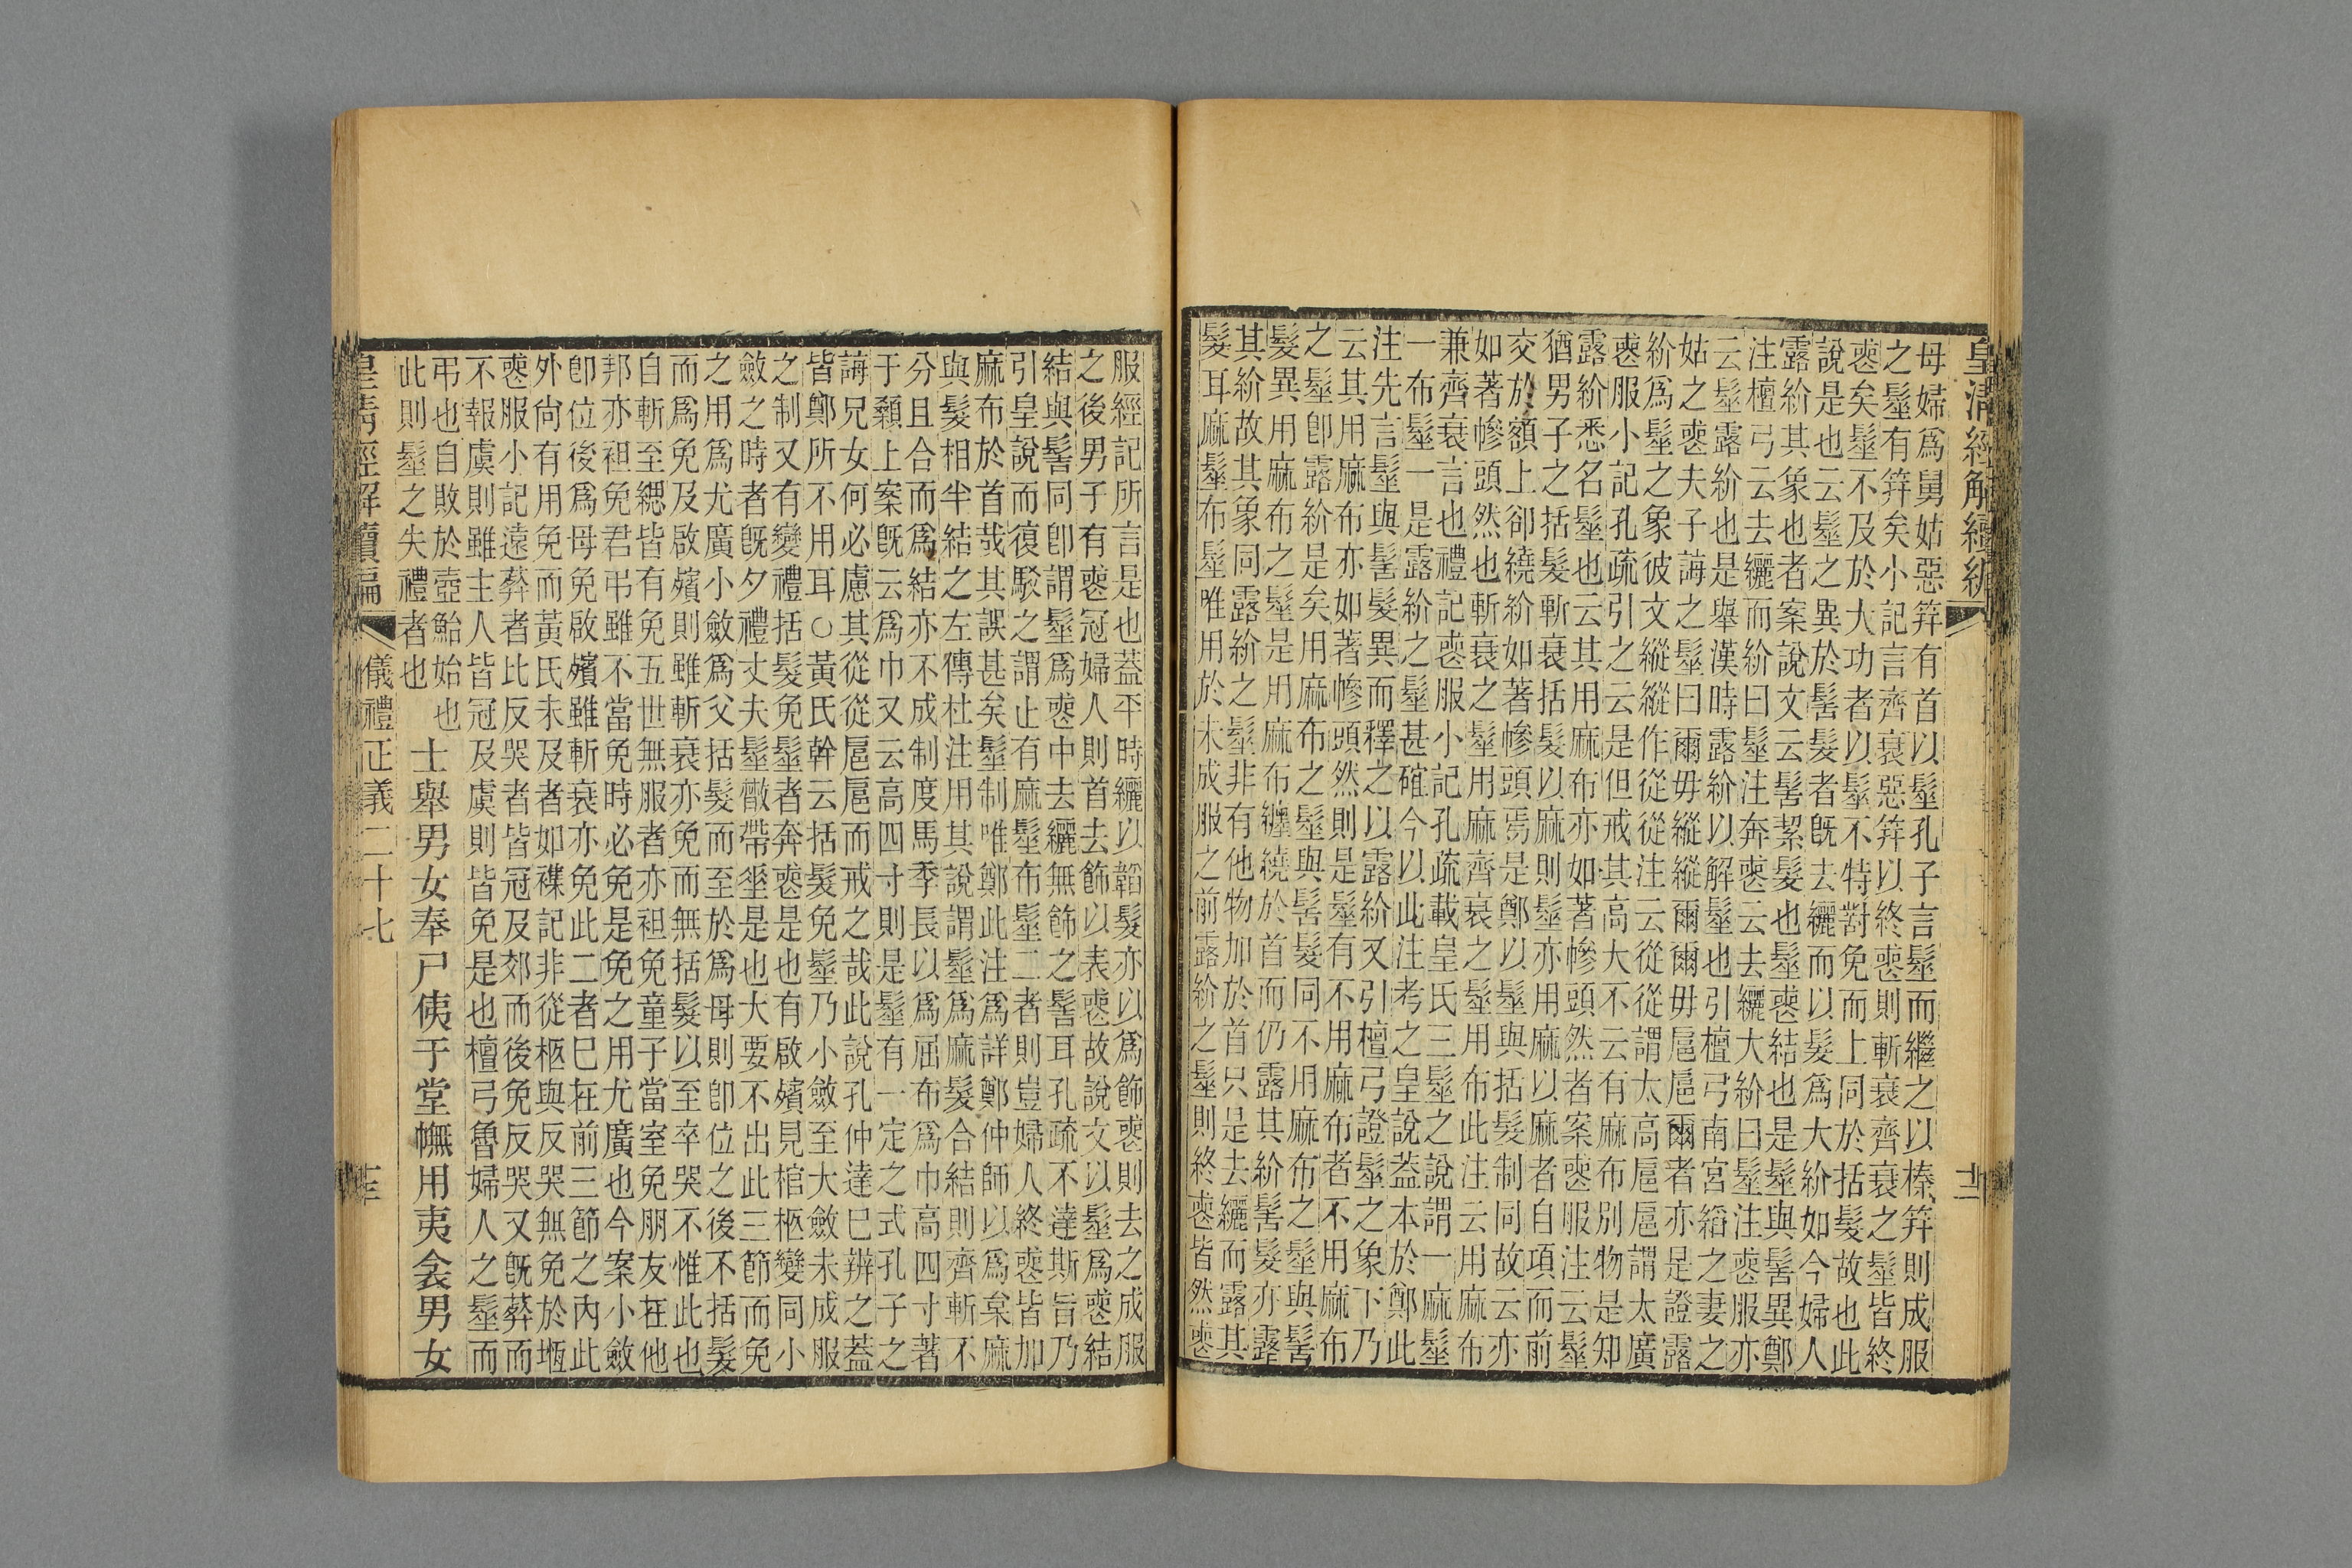 皇清經解續編
母婦爲舅姑惡筓有首以髽孔子言髽而繼之以榛筓則成服
之髽有筓矣小記言齊衰惡筓以終喪則斬衰齊衰之髽皆終
喪矣髽不及於大功者以髽不特對免而上同於括髮故也此
說是也云髽之異於髻髮者旣去纚而以髮爲大紒如今婦人
露紒其象也者案說文云髻絜髮也髽喪結也是髽與髻異鄭
注檀弓云去纚而紒曰髽注奔喪云去纚大紒曰髽注喪服亦
云髽露紒也是舉漢時露紒以解髽也引檀弓南宮縚之妻之
姑之喪夫子誨之髽曰爾毋縱縱爾爾毋扈扈爾者亦是證露
紒爲髽之象彼文縱縱作從從注云從從謂太高扈扈謂太廣
喪服小記孔疏引之云是但戒其高大不云有麻布別物是知
露紒悉名髽也云其用麻布亦如著幓頭然者案喪服注云髽
猶男子之括髮斬衰括髮以麻則髽亦用麻以麻者自項而前
交於額上卻繞紒如著幓頭焉是鄭以髽與括髮制同故云亦
如著幓頭然也斬衰之髽用麻齊衰之髽用布此注云用麻布
兼齊衰言也禮記喪服小記孔疏載皇氏三髽之說謂一麻髽
一布髽一是露紒之髽甚確今以此注考之皇說蓋本於鄭此
注先言髽與髻髮異而釋之以露紒又引檀弓證髽之象下乃
云其用麻布亦如著幓頭然則是髽有不用麻布者不用麻布
之髽卽露紒是矣用麻布之髽與髻髮同不用麻布之髽與髻
髮異用麻布之髽是用麻布纏繞於首而仍露其紒髻髮亦露
其紒故其象同露紒之髽非有他物加於首只是去纚而露其
髮耳麻髽布髽唯用於未成服之前露紒之髽則終喪皆然喪
服經記所言是也蓋平時纚以韜髮亦以爲飾喪則去之成服
之後男子有喪冠婦人則首去飾以表喪故說文以髽爲喪結
結與髻同卽謂髽爲喪中去纚無飾之髻耳孔疏不達斯旨乃
引皇說而復駮之謂止有麻髽布髽二者則豈婦人終喪皆加
麻布於首哉其誤甚矣髽制唯鄭此注爲詳鄭仲師以爲枲麻
與髮相半結之左傳杜注用其說謂髽爲麻髮合結則齊斬不
分且合而爲結亦不成制度馬季長以爲屈布爲巾高四寸著
于顙上案旣云爲巾又云高四寸則是髽有一定之式孔子之
誨兄女何必慮其從從扈扈而戒之哉此說孔仲達已辨之蓋
皆鄭所不用耳○黃氏幹云括髮免髽乃小斂至大斂未成服
之制又有變禮括髮免髽者奔喪是也有啟殯見棺柩變同小
斂之時者旣夕禮丈夫髽散帶垂是也大要不出此三節而免
之用爲尤廣小斂爲父括髮而至於爲母則卽位之後不括髮
而爲免及啟殯則雖斬衰亦免而無括髮以至卒哭不惟此也
自斬至緦皆有免五世無服者亦袒免童子當室免朋友在他
邦亦袒免君弔雖不當免時必免是免之用尤廣也今案小斂
卽位後爲母免啟殯雖斬衰亦免此二者已在前三節之內此
外尙有用免而黃氏未及者如襍記非從柩與反哭無免於堩
喪服小記遠葬者比反哭者皆冠及郊而後免反哭又旣葬而
不報虞則雖主人皆冠及虞則皆免是也檀弓魯婦人之髽而
弔也自敗於壺鮐始也
此則髽之失禮者也
士舉男女奉尸侇于堂幠用夷衾男女
皇清經解續編
儀禮正義二十七